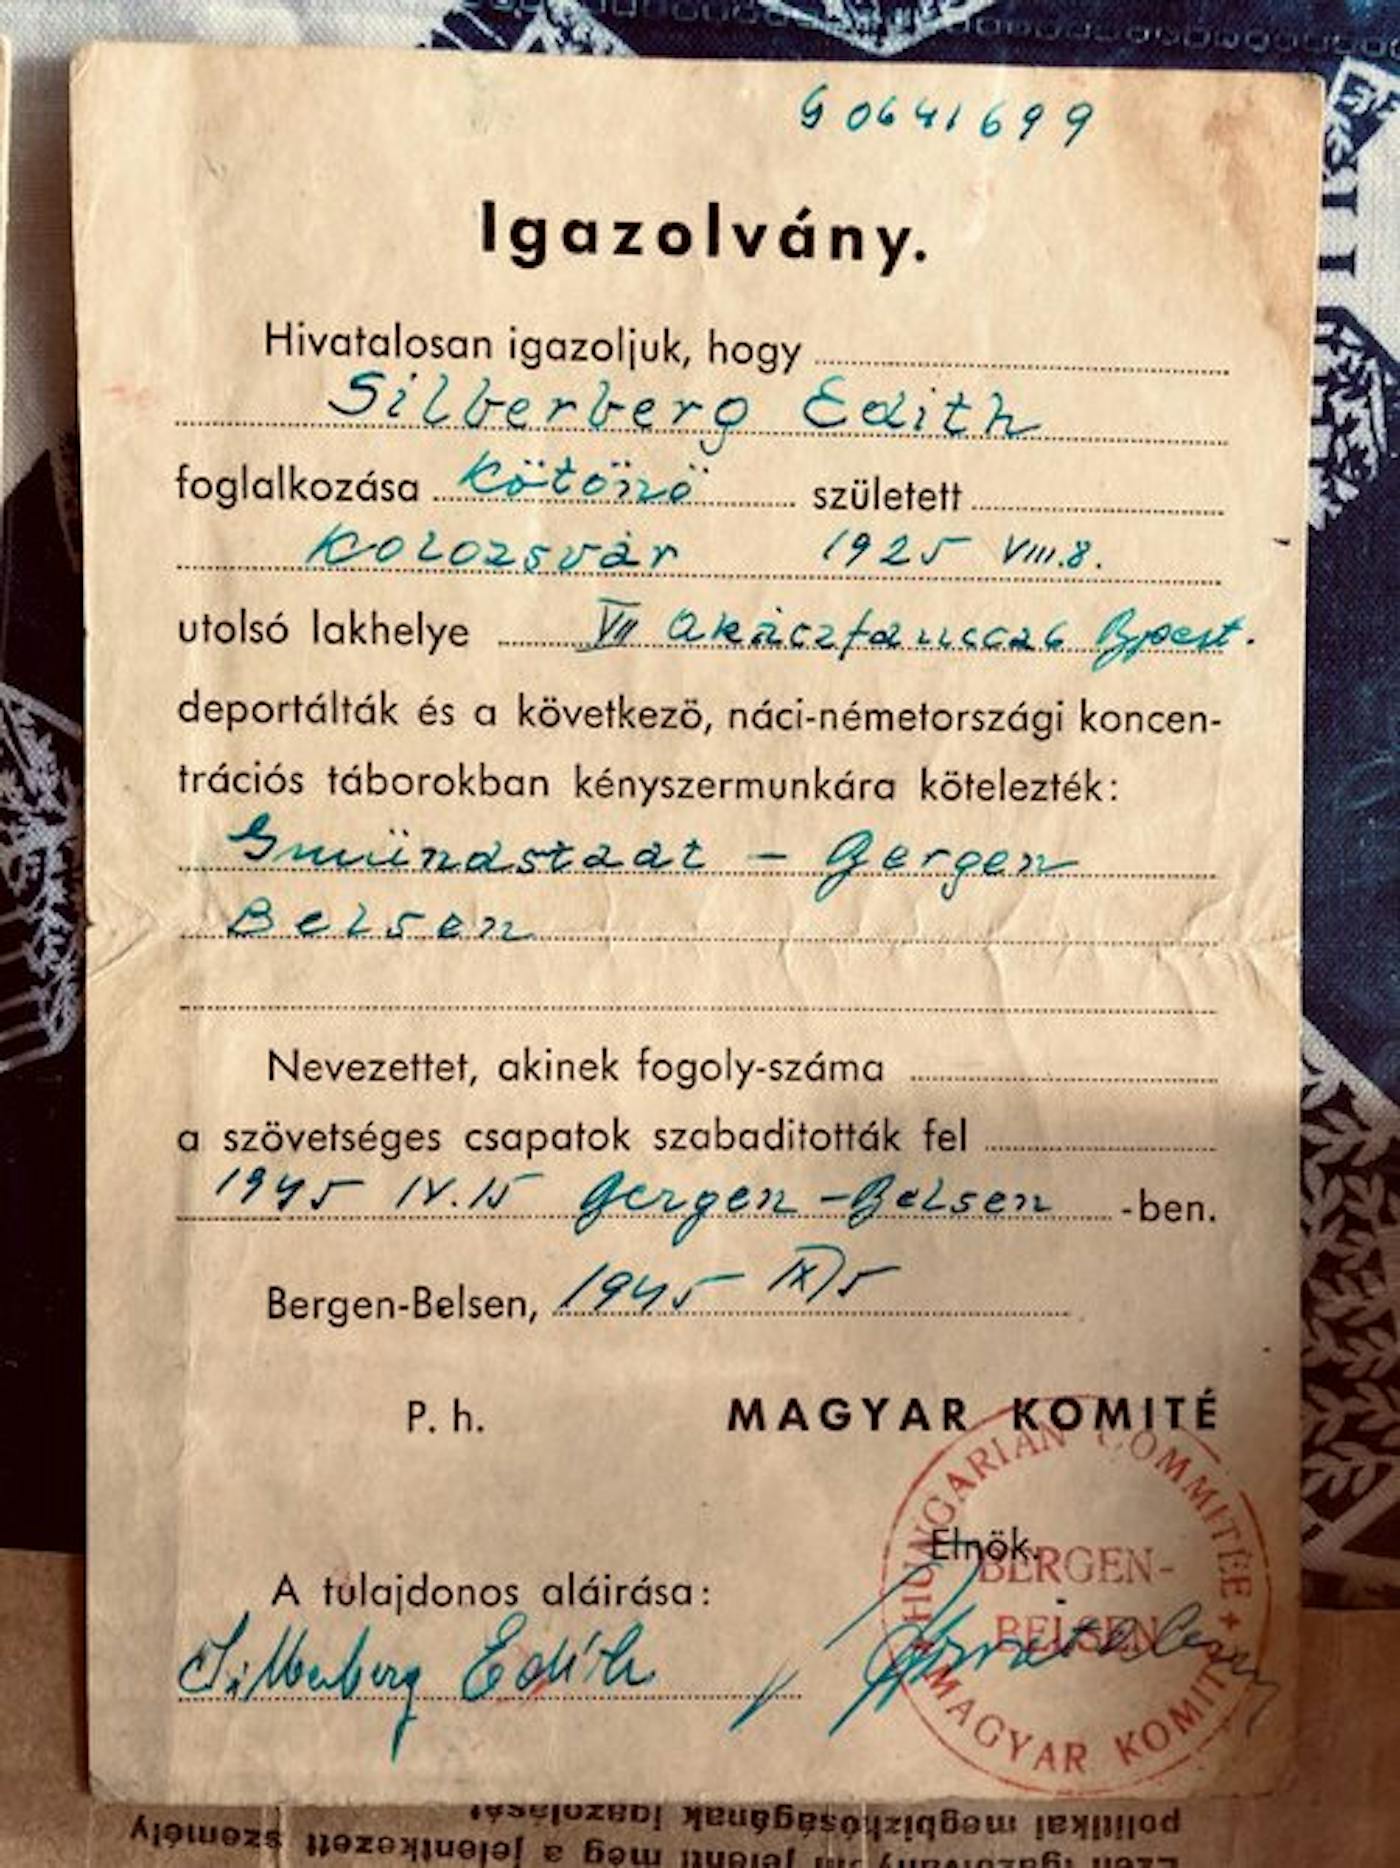 G 0641699
Igazolvány.
Hivatalosan igazoljuk, hogy
Silberberg Edith
foglalkozása Kötönö született
Kolozsvár 1925 VIII.8.
utolsó lakhelye VII Akáczfaucca 6 Bpest.
deportálták és a következö, náci-németországi koncen-
trációs táborokban kényszermunkára kötelezték:
Gmündstadt - Bergen
Belsen
Nevezettet, akinek fogoly-száma
a szövetséges csapatok szabaditották fel
1945 IV.15 Bergen-Belsen -ben.
Bergen-Belsen, 1945 IX/5
P. h. MAGYAR KOMITÉ
HUNGARIAN COMMITTEE
Elnök.
BERGEN-
BELSEN
MAGYAR KOMITÉ
A tulajdonos aláirása:
Silberberg Edith
politikai megbizhóságának igazolását
Ezen igazolvány jelenti meg a jelentkezett személy